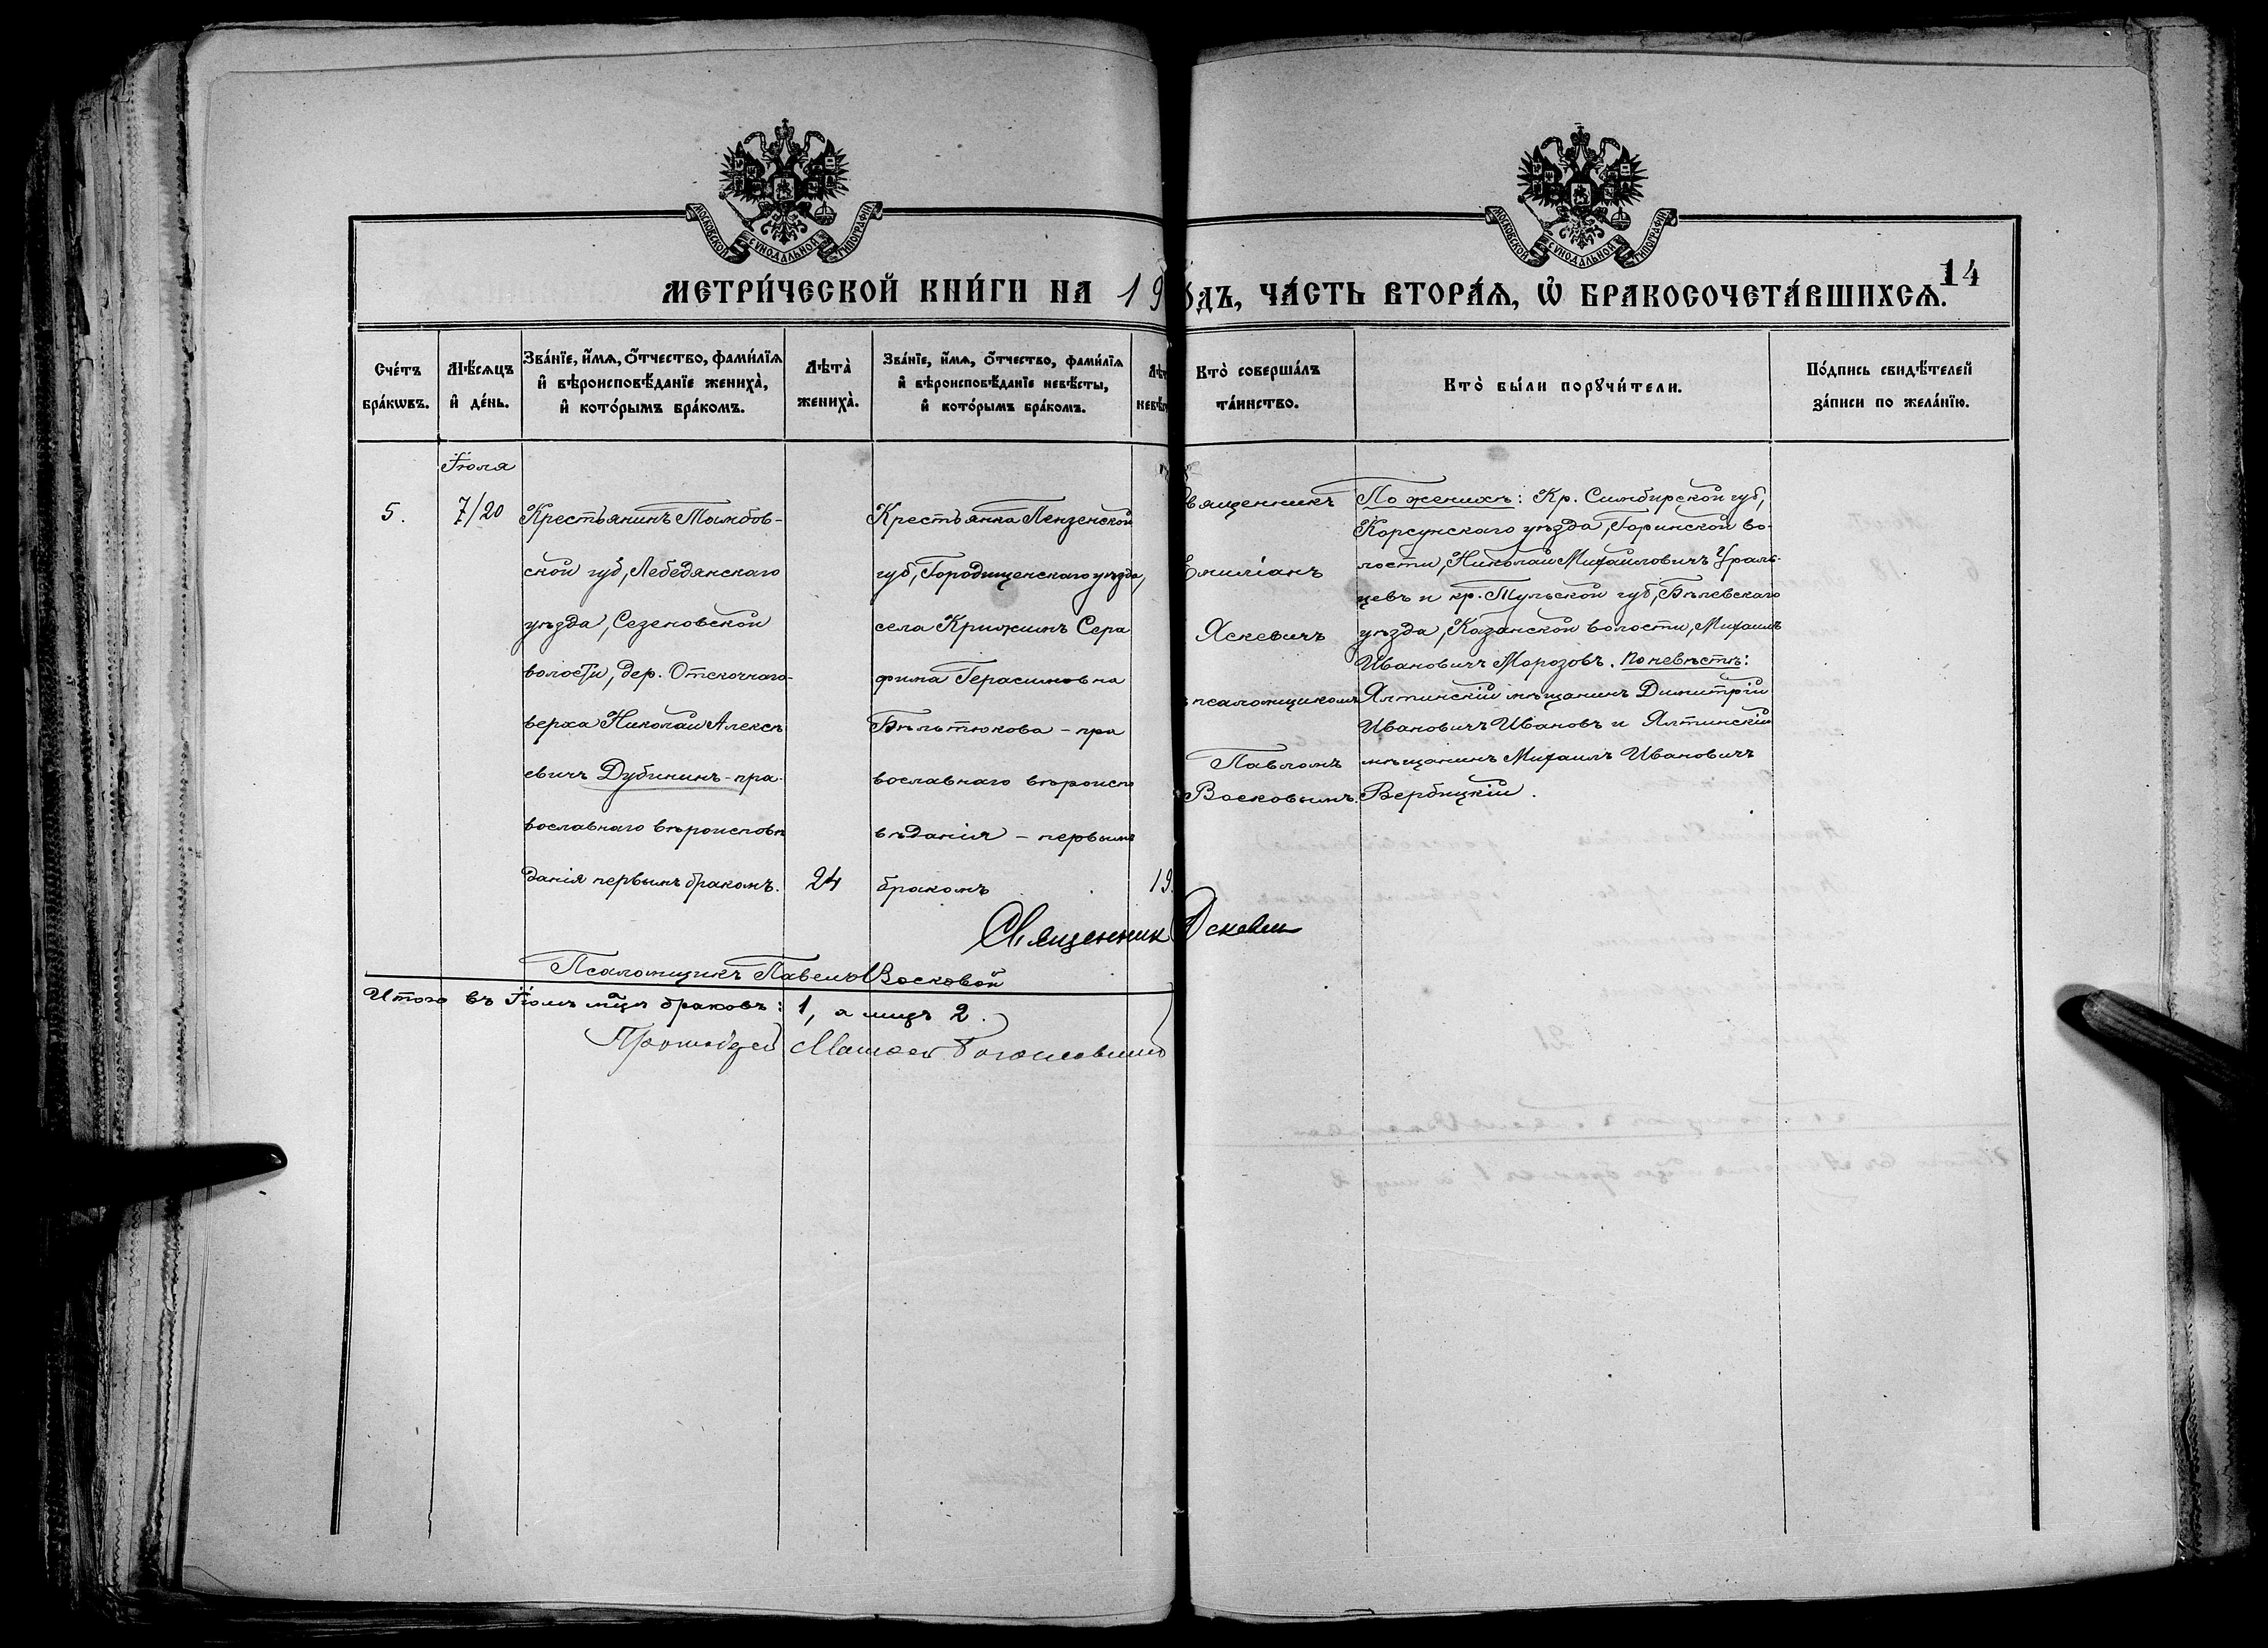 МОСКОВСКОЙ СѴНОДАЛЬНОЙ ТИПОГРАФІИ
МОСКОВСКОЙ СѴНОДАЛЬНОЙ ТИПОГРАФІИ
14
МЕТРИ́ЧЕСКОЙ КНИ́ГИ НА 19
ОДЪ, ЧА́СТЬ ВТОРА́Ѧ, Ѽ БРАКОСОЧЕТА́ВШИХСѦ.
Сче́тъ бра́кѡвъ.
Мѣ́сяцъ и҆ де́нь.
Зва́нїе, и҆́мѧ, ѻ҆́тчество, фами́лїѧ и҆ вѣроисповѣ́данїе жениха̀, и҆ кото́рымъ бра́комъ.
Лѣта̀ жениха̀.
Зва́нїе, и҆́мѧ, ѻ҆́тчество, фами́лїѧ и҆ вѣроисповѣ́данїе невѣ́сты, и҆ кото́рымъ бра́комъ.
Кто̀ соверша́лъ та́инство.
Кто̀ бы́ли порꙋчи́тели.
По́дпись свидѣ́телей за́писи по жела́нїю.
Іюля
5.
7/20
Крестьянинъ Тамбов-
ской губ, Лебедянскаго
уѣзда, Сезеновской
волости, дер. Отскочнаго-
верха Николай Алексѣ
евичъ Дубининъ - пра-
вославнаго вѣроисповѣ
данія первымъ бракомъ.
24
Крестьянка Пензенской
губ, Городищенскаго уѣзда,
села Крижимъ Сера
фима Герасимовна
Бѣльтюкова - пра
вославнаго вѣроиспо
вѣданія - первымъ
бракомъ
19.
вященникъ
Емиліанъ
Яскевичъ
псаломщикомъ
Павломъ
Восковымъ.
По женихѣ: Кр. Симбирской губ,
Корсунскаго уѣзда, Горинской во-
лости, Николай Михайловичъ Ураль-
цевъ и кр. Тульской губ, Бѣлевскаго
уѣзда, Казанской волости, Михаилъ
Ивановичъ Морозовъ. По невѣстѣ:
Ялтинскій мѣщанинъ Димитрій
Ивановичъ Ивановъ и Ялтинскій
мѣщанинъ Михаилъ Ивановичъ
Вербицкій.
Священник Яскевич
Псаломщикъ Павелъ Восковой
Итого въ Іюлѣ мцѣ браковъ: 1, а лицъ 2.